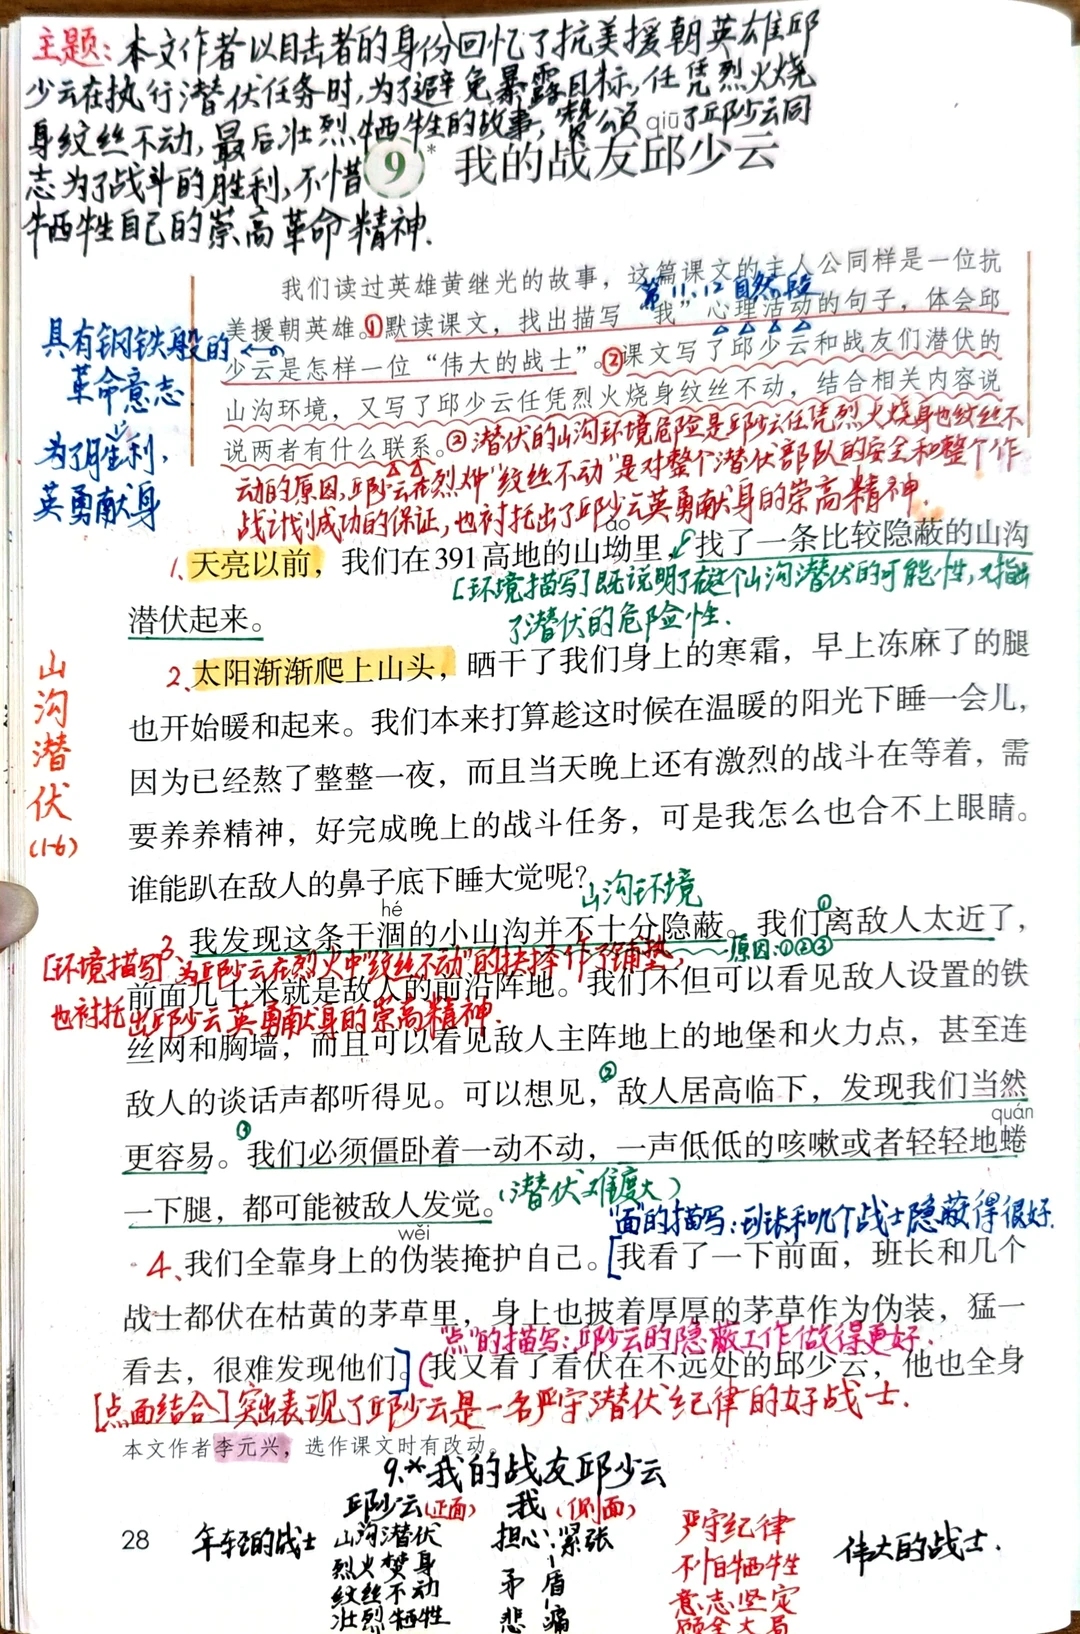 主题:本文作者以目击者的身份回忆了抗美援朝英雄邱
少云在执行潜伏任务时,为了避免暴露目标,任凭烈火烧
身纹丝不动,最后壮烈牺牲的故事,赞颂了邱少云同
志为了战斗的胜利,不惜
牺牲自己的崇高革命精神.
qiū
9* 我的战友邱少云
我们读过英雄黄继光的故事，这篇课文的主人公同样是一位抗
第11、12自然段
美援朝英雄。①默读课文，找出描写“我”心理活动的句子，体会邱
少云是怎样一位“伟大的战士”。②课文写了邱少云和战友们潜伏的
山沟环境，又写了邱少云任凭烈火烧身纹丝不动，结合相关内容说
说两者有什么联系。
具有钢铁般的
革命意志
为了胜利,
英勇献身
②潜伏的山沟环境危险是邱少云任凭烈火烧身也纹丝不
动的原因,邱少云在烈火中“纹丝不动”是对整个潜伏部队的安全和整个作
战计划成功的保证,也衬托出了邱少云英勇献身的崇高精神.
ào
1、天亮以前，我们在391高地的山坳里，找了一条比较隐蔽的山沟
[环境描写]既说明了在这个山沟潜伏的可能性,又指出
了潜伏的危险性.
潜伏起来。
2、太阳渐渐爬上山头，晒干了我们身上的寒霜，早上冻麻了的腿
也开始暖和起来。我们本来打算趁这时候在温暖的阳光下睡一会儿，
因为已经熬了整整一夜，而且当天晚上还有激烈的战斗在等着，需
要养养精神，好完成晚上的战斗任务，可是我怎么也合不上眼睛。
谁能趴在敌人的鼻子底下睡大觉呢?
山沟潜伏
(1-6)
山沟环境
hé
3 我发现这条干涸的小山沟并不十分隐蔽。我们①离敌人太近了，
原因:①②③
[环境描写]为邱少云在烈火中“纹丝不动”的抉择作了铺垫,
前面几十米就是敌人的前沿阵地。我们不但可以看见敌人设置的铁
也衬托出邱少云英勇献身的崇高精神.
丝网和胸墙，而且可以看见敌人主阵地上的地堡和火力点，甚至连
敌人的谈话声都听得见。可以想见，②敌人居高临下，发现我们当然
quán
更容易。③我们必须僵卧着一动不动，一声低低的咳嗽或者轻轻地蜷
一下腿，都可能被敌人发觉。(潜伏难度大)
“面”的描写:班长和几个战士隐蔽得很好.
wěi
4、我们全靠身上的伪装掩护自己。[我看了一下前面，班长和几个
战士都伏在枯黄的茅草里，身上也披着厚厚的茅草作为伪装，猛一
“点”的描写:邱少云的隐蔽工作做得更好.
看去，很难发现他们](我又看了看伏在不远处的邱少云，他也全身
[点面结合]突出表现了邱少云是一名严守潜伏纪律的好战士.
本文作者李元兴，选作课文时有改动。
9.*我的战友邱少云
邱少云(正面) 我(侧面)
28 年轻的战士 山沟潜伏 担心:紧张 严守纪律 伟大的战士.
烈火焚身 不怕牺牲
纹丝不动 矛盾 意志坚定
壮烈牺牲 悲痛 顾全大局